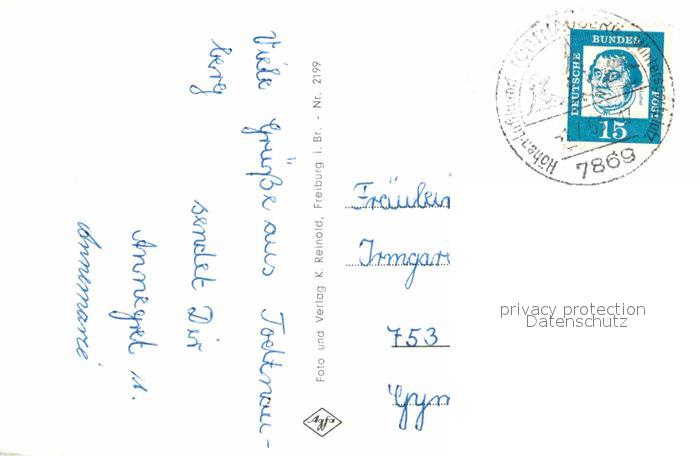 Viele Grüße aus Todtnau-
berg
sendet Dir
Annegret u.
Annemarie
Foto und Verlag K. Reinold, Freiburg i. Br. - Nr. 2199
Agfa
Fräulein
Irmgar
753
Gyn
TODTNAUBERG
7869
DEUTSCHE
BUNDES
POST
15
privacy protection
Datenschutz